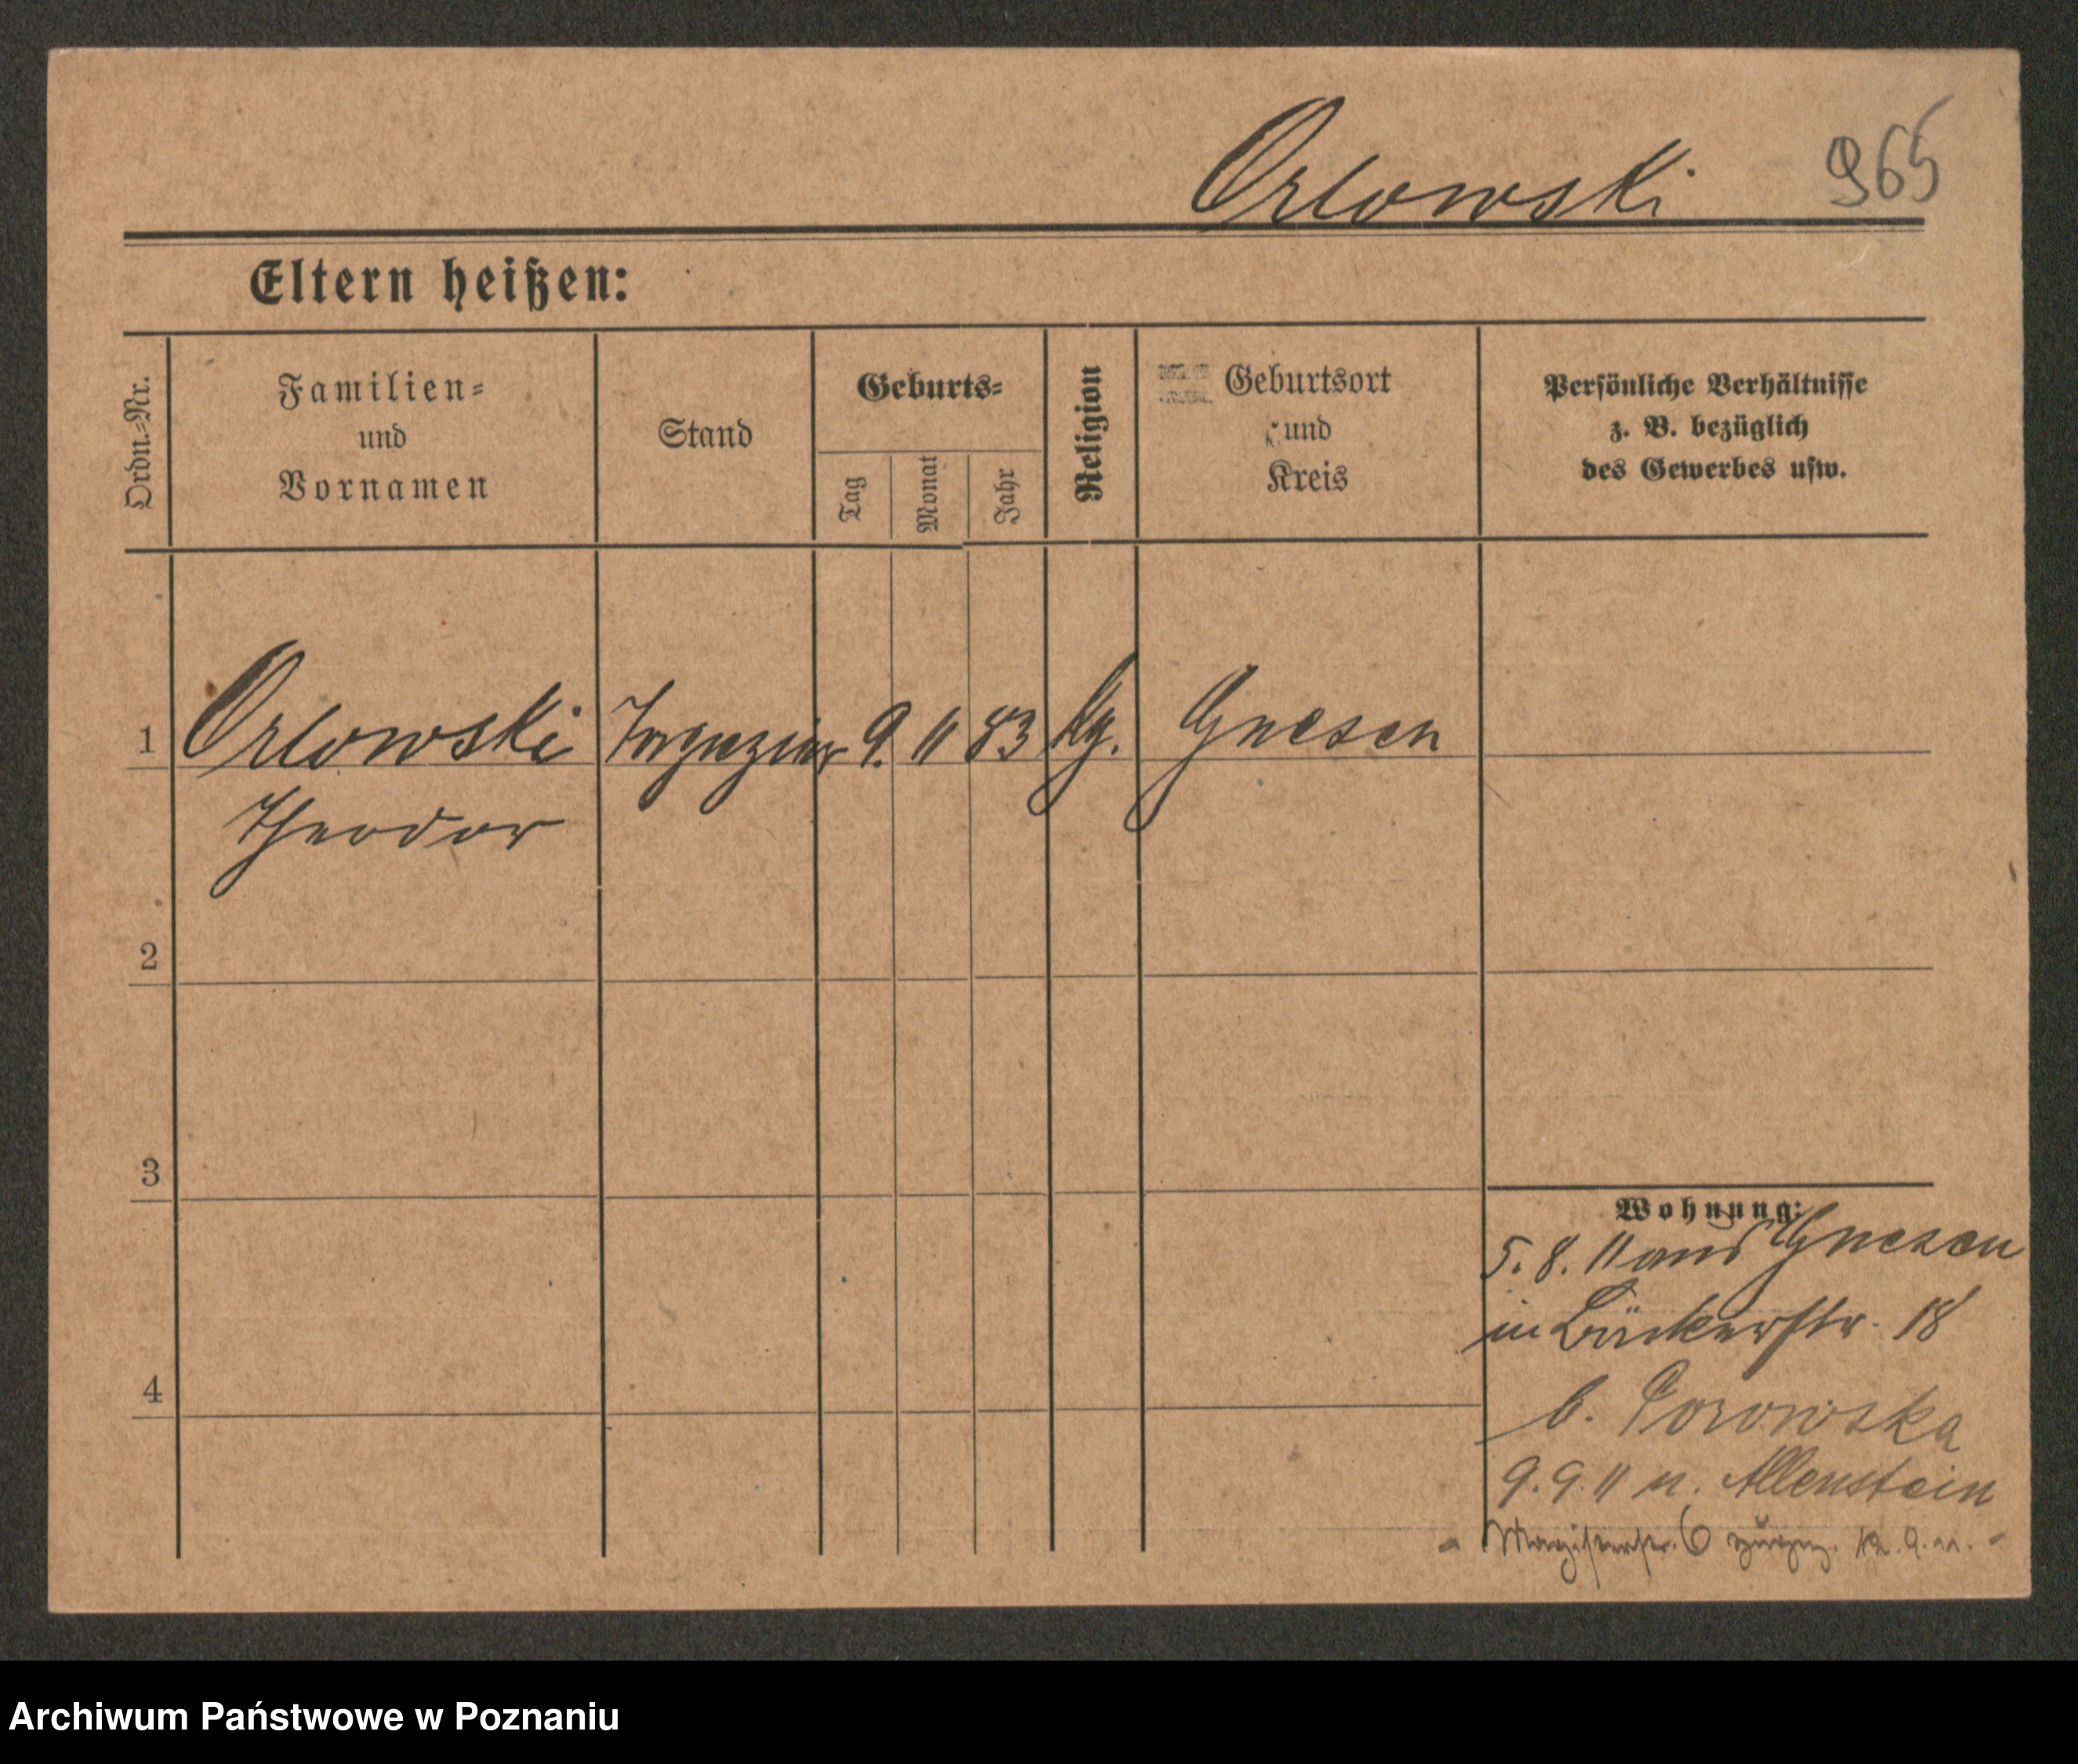 Orlowski 965
Eltern heißen:
Ordn.-Nr.
Familien-
und
Vornamen
Stand
Geburts-
Tag
Monat
Jahr
Religion
Geburtsort
und
Kreis
Persönliche Verhältnisse
z. B. bezüglich
des Gewerbes usw.
1 Orlowski Tapezier 9. 11 83 kg. Gnesen
Theodor
2
3
4
Wohnung:
5. 8. 11 aus Gnesen
in Bäckerstr. 18
b. Porowska
9. 9. 11 n. Allenstein
Magisterstr. 6 12. 9. 11.
Archiwum Państwowe w Poznaniu